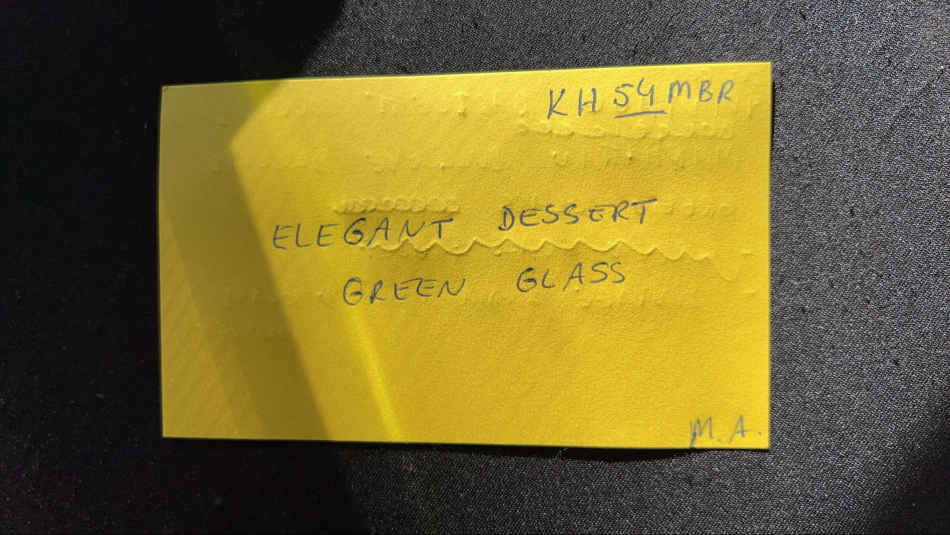 KH54MBR
ELEGANT DESSERT
GREEN GLASS
M.A.